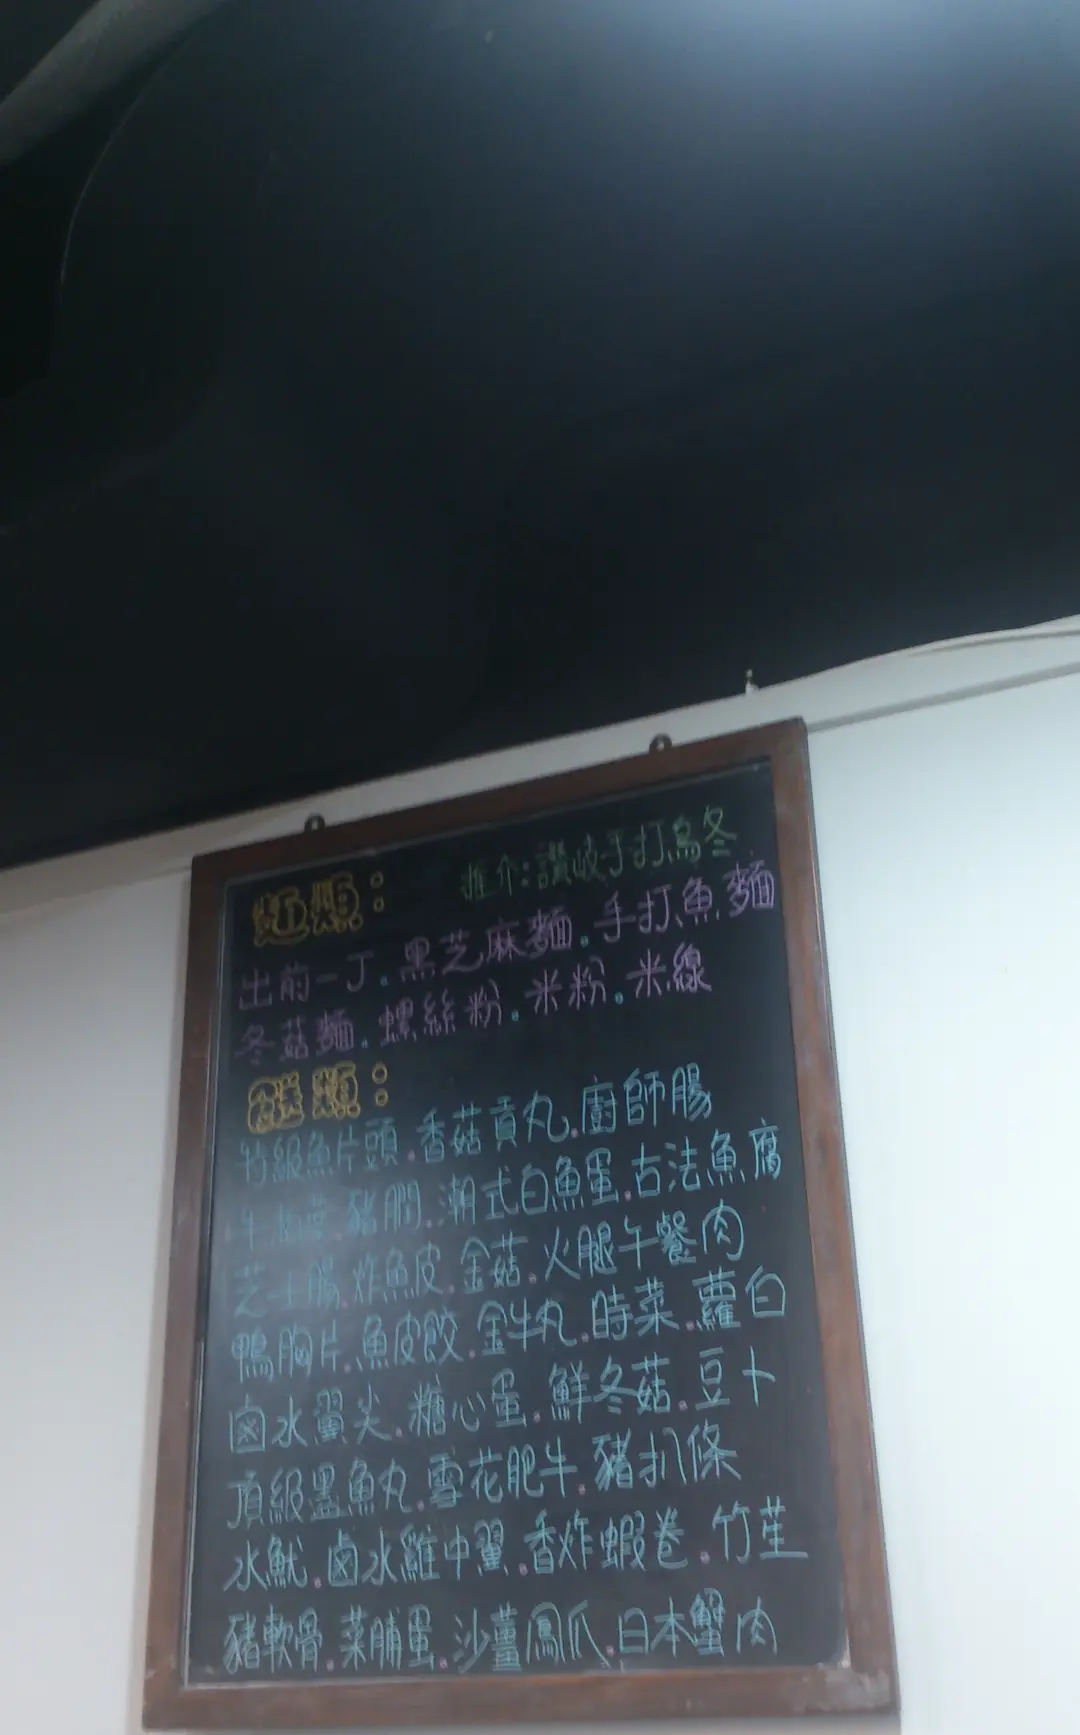 麵類：
推介：讚岐手打烏冬
出前一丁.黑芝麻麵.手打魚麵
冬菇麵.螺絲粉.米粉.米線
餸類：
特級魚片頭.香菇貢丸.廚師腸
豬膶.潮式白魚蛋.古法魚腐
芝士腸.炸魚皮.金菇.火腿午餐肉
鴨胸片.魚皮餃.金牛丸.時菜.蘿白
卤水翼尖.糖心蛋.鮮冬菇.豆卜
頂級墨魚丸.雪花肥牛.豬扒條
水魷.卤水雞中翼.香炸蝦卷.竹笙
豬軟骨.菜脯蛋.沙薑鳳爪.日本蟹肉